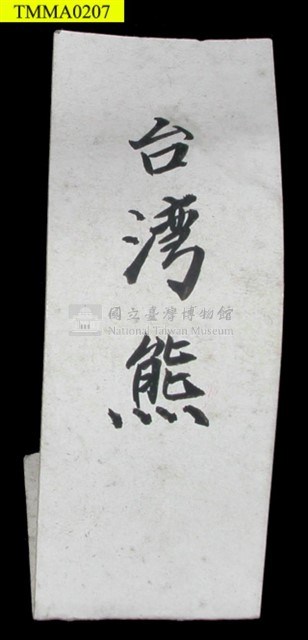 TMMA0207
台湾熊
國立臺灣博物館
National Taiwan Museum